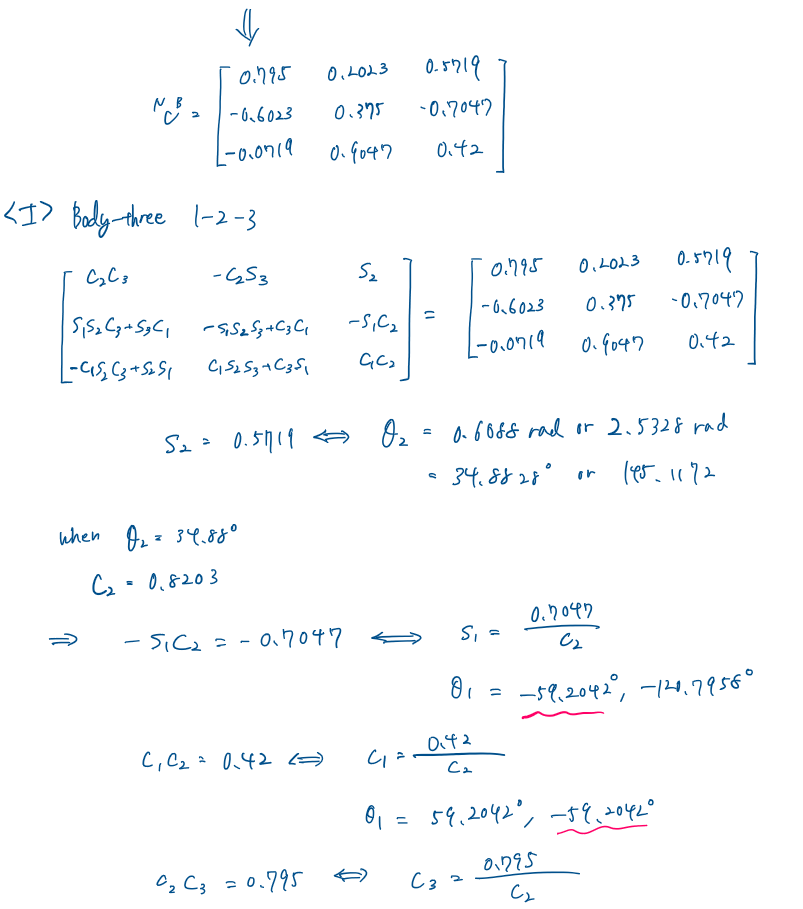 ⇓
ᴺCᴮ = [ 0.795 0.2023 0.5719
-0.6023 0.375 -0.7047
-0.0719 0.9047 0.42 ]
<I> Body-three 1-2-3
[ C₂C₃ -C₂S₃ S₂ ] = [ 0.795 0.2023 0.5719
S₁S₂C₃+S₃C₁ -S₁S₂S₃+C₃C₁ -S₁C₂ -0.6023 0.375 -0.7047
-C₁S₂C₃+S₂S₁ C₁S₂S₃+C₃S₁ C₁C₂ ] -0.0719 0.9047 0.42 ]
S₂ = 0.5719 ⇔ θ₂ = 0.6088 rad or 2.5328 rad
= 34.8828° or 145.1172
when θ₂ = 34.88°
C₂ = 0.8203
⇒ -S₁C₂ = -0.7047 ⇔ S₁ = 0.7047 / C₂
θ₁ = -59.2042°, -120.7958°
C₁C₂ = 0.42 ⇔ C₁ = 0.42 / C₂
θ₁ = 59.2042°, -59.2042°
C₂C₃ = 0.795 ⇔ C₃ = 0.795 / C₂